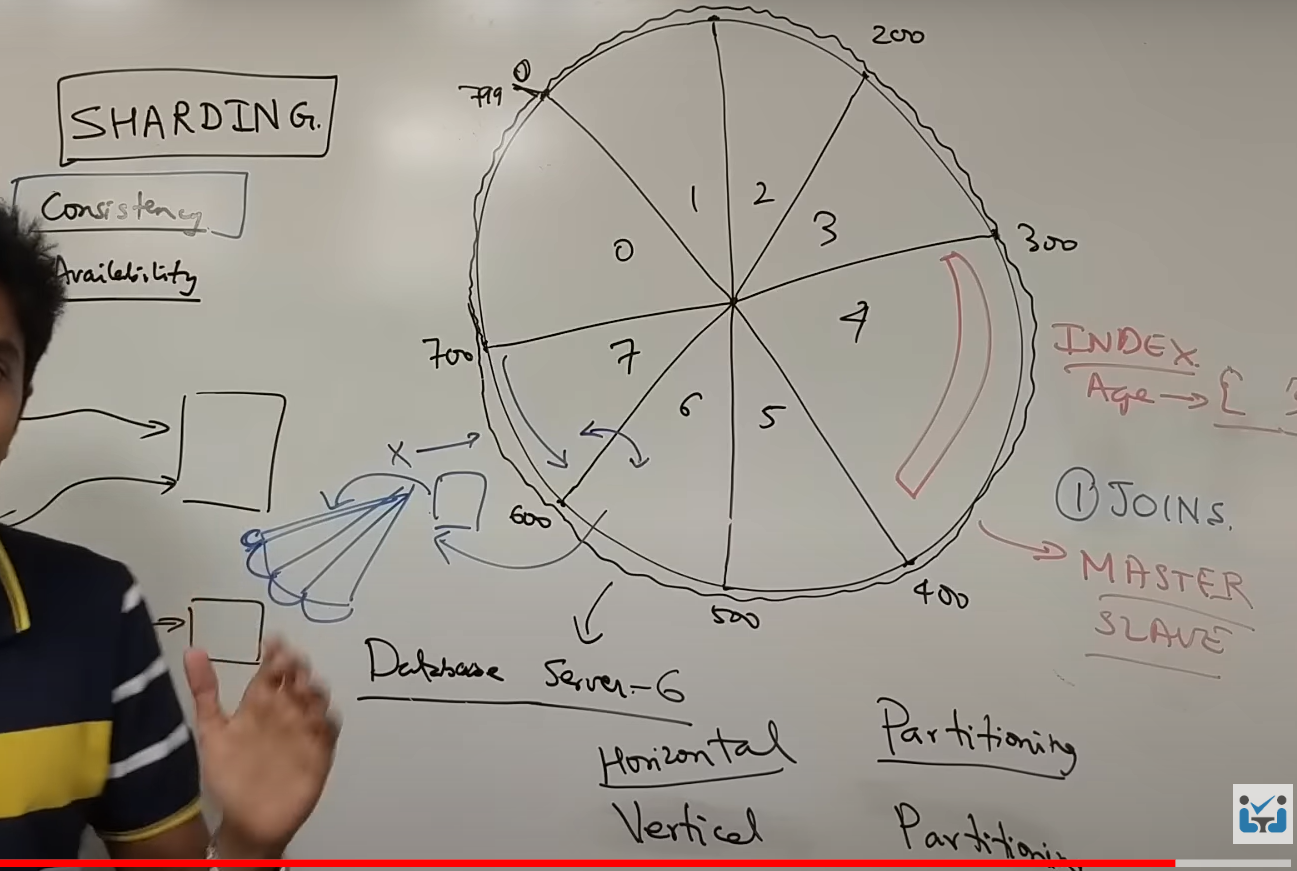 SHARDING.
Consistency
Availability
0
799
200
300
400
500
600
700
0
1
2
3
4
5
6
7
X
INDEX
Age → [
① JOINS.
MASTER
SLAVE
Database Server-6
Horizontal Partitioning
Vertical Partitioning